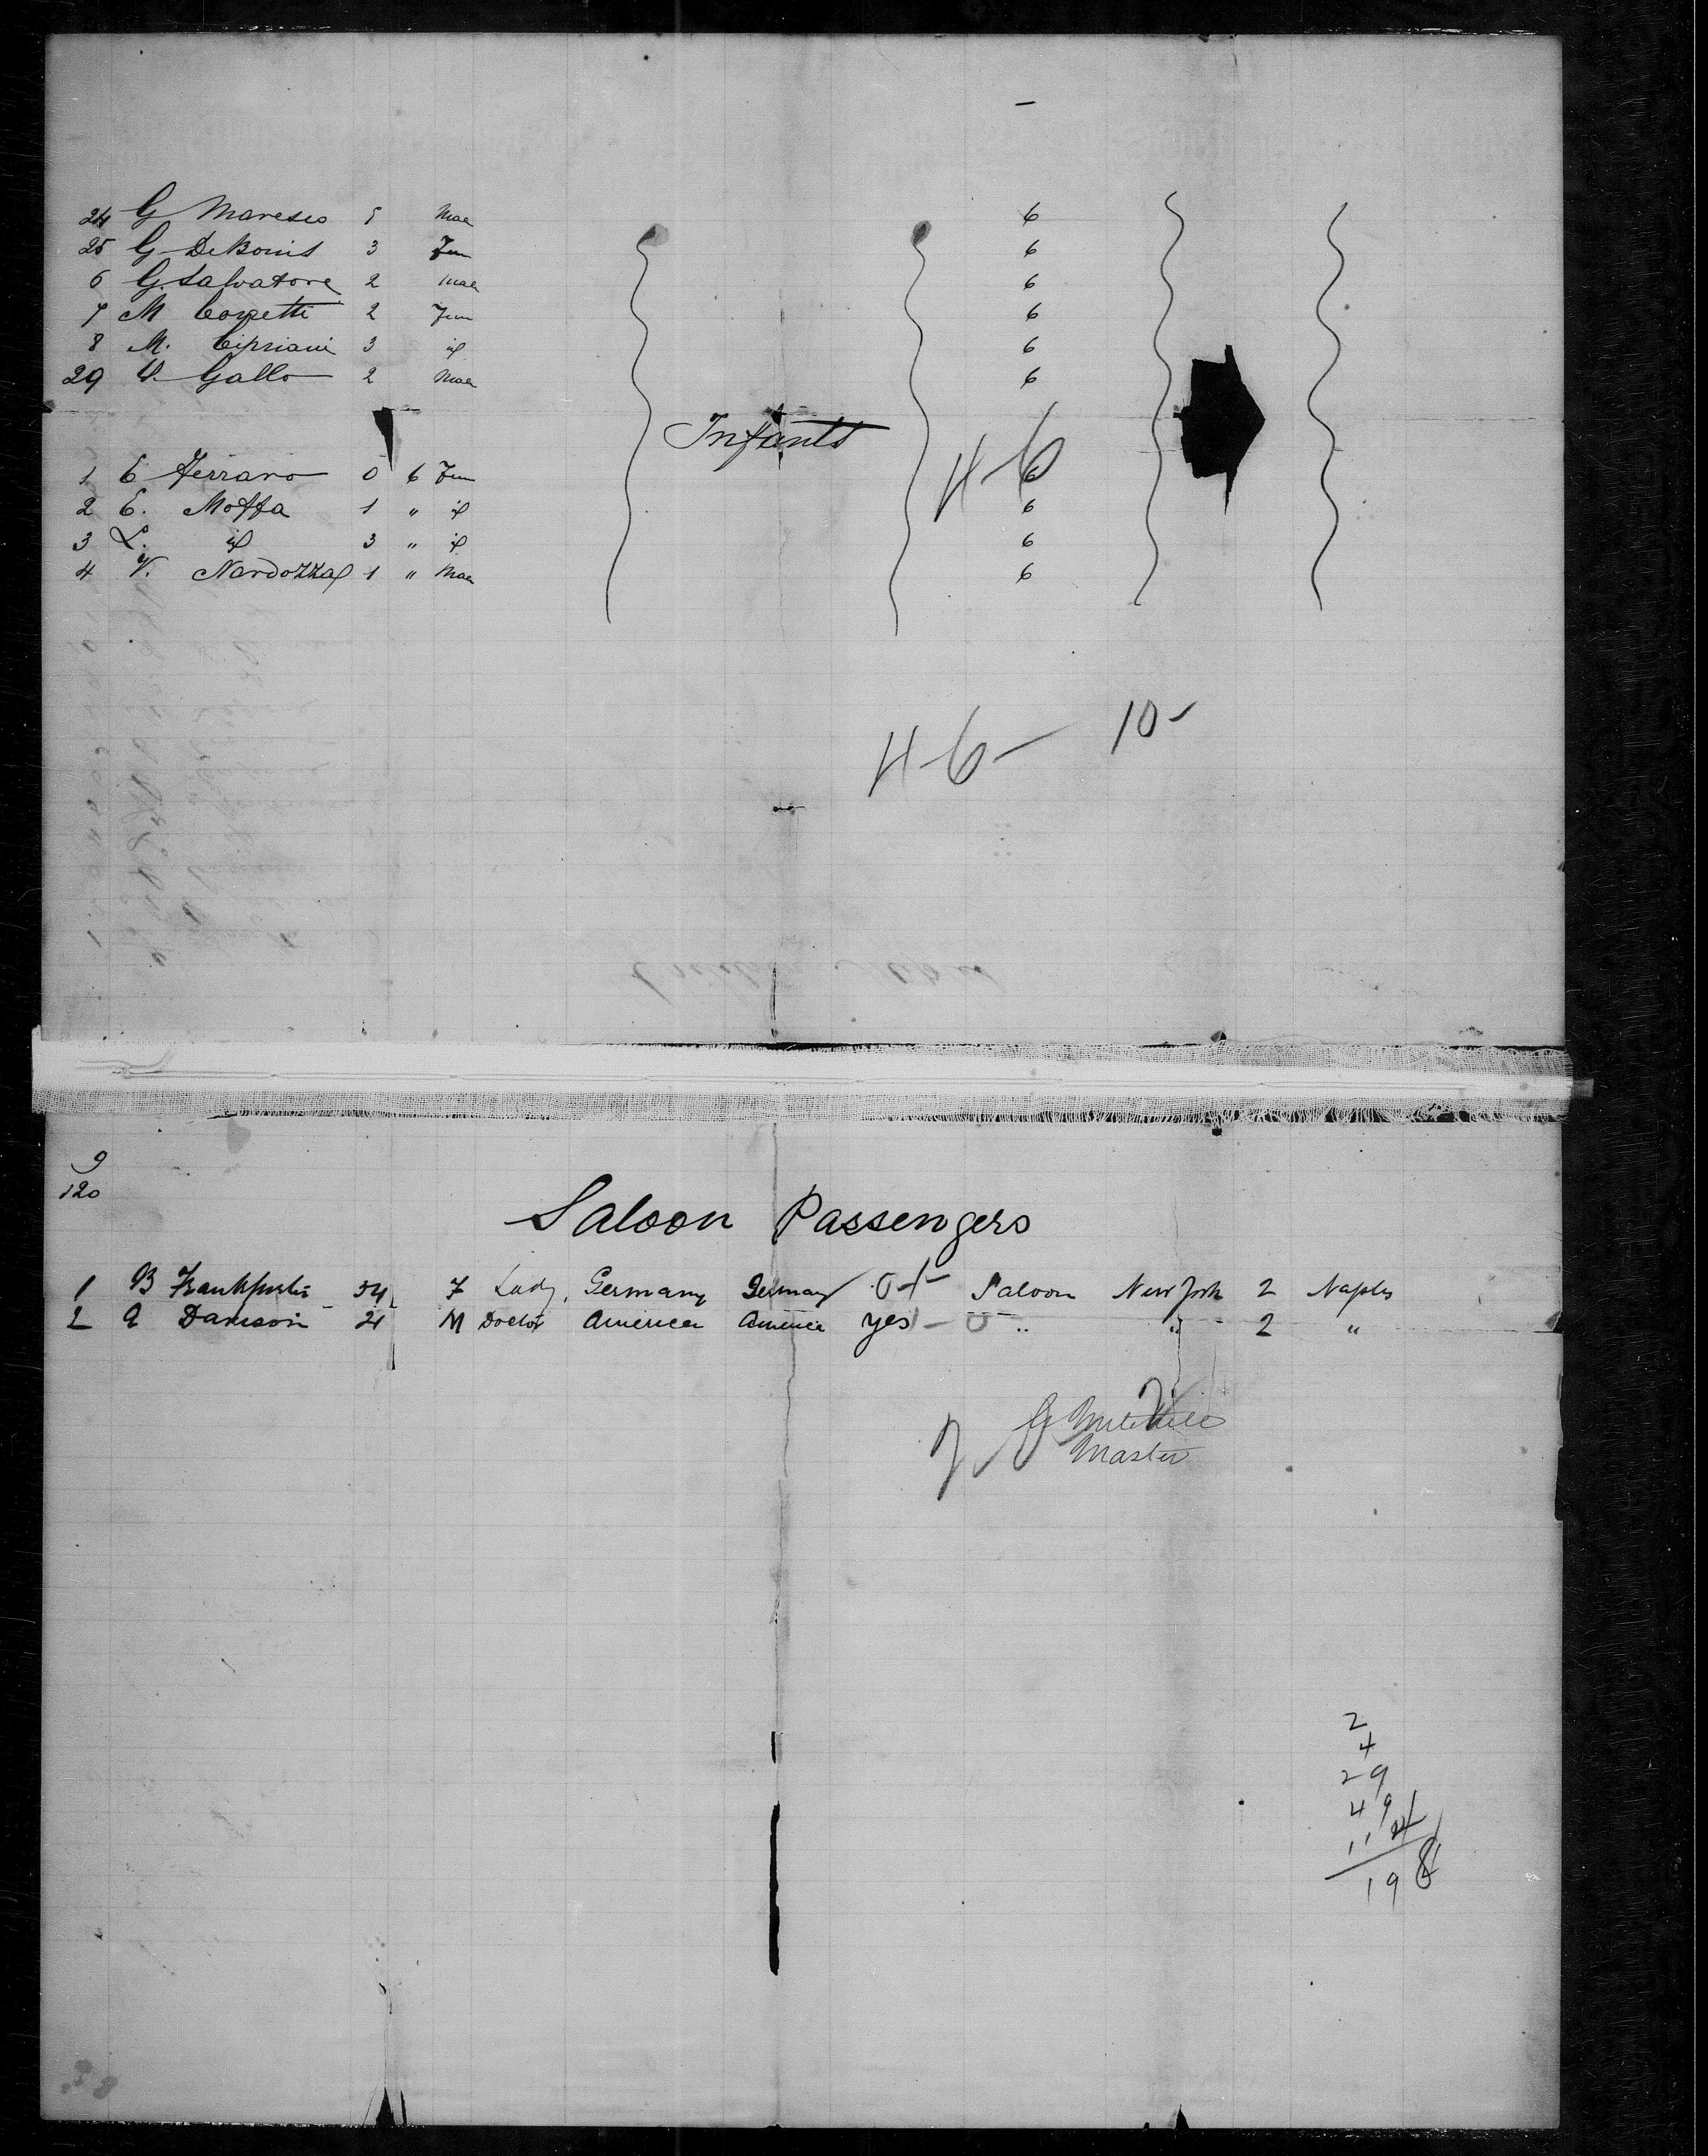 24 G Maresco 5 Mae 6
25 G DeBonis 3 Fem 6
6 G. Salvatore 2 Mae 6
7 M Copetti 2 Fem 6
8 M. Cipriani 3 id 6
29 V. Gallo 2 Mae 6
Infants
4-6
1 C Ferraro 0 6 Fem 6
2 E. Moffa 1 " id 6
3 L. id 3 " id 6
4 V. Nardozza 1 " Mae 6
4-6- 10-
9
120
Saloon Passengers
1 B 54 F Lady, Germany Germany 0 Saloon New York 2 Naples
2 A Davison 21 M Doctor America America yes - 0 " " 2 "
G Mitchell
Master
2
4
29
49
114
198